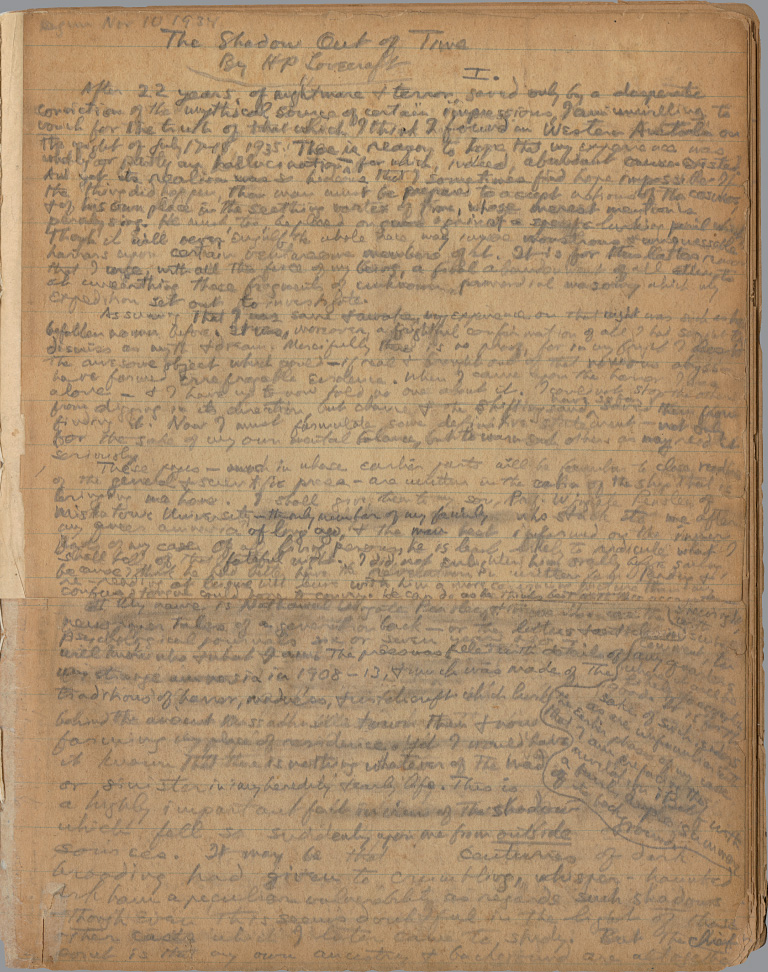 Begun Nov 10 1934
The Shadow Out of Time
By HP Lovecraft
I.
After 22 years of nightmare & terror, saved only by a desperate
conviction of the mythical source of certain impressions, I am unwilling to
vouch for the truth of that which I think I found in Western Australia on
the night of July 17-18, 1935. There is reason to hope that my experience was
wholly or partly an hallucination—for which, indeed, abundant causes existed.
And yet its realism was so hideous that I sometimes find hope impossible. If
the thing did happen, then man must be prepared to accept notions of the cosmos,
& of his own place in the seething vortex of time, whose merest mention is
paralysing. He must, too, be placed on guard against a specific lurking peril which,
though it will never engulf the whole race, may impose monstrous & unguessable
horrors upon certain venturesome members of it. It is for this latter reason
that I urge, with all the force of my being, a final abandonment of all attempts
at unearthing those fragments of unknown, primordial masonry which my
expedition set out to investigate.
Assuming that I was sane & awake, my experience on that night was such as has
befallen no man before. It was, moreover, a frightful confirmation of all I had sought to
dismiss as myth & dream. Mercifully there is no proof, for in my fright I lost
the awesome object which would—if real & brought out of that noxious abyss—
have formed irrefragable evidence. When I came upon the horror I was
alone—& I have up to now told no one about it. I could not stop the others
from digging in its direction, but chance & the shifting sand have so far saved them from
finding it. Now I must formulate some definitive statement—not only
for the sake of my own mental balance, but to warn such others as may read it
seriously.
These pages—much in whose earlier parts will be familiar to close readers
of the general & scientific press—are written in the cabin of the ship that is
bringing me home. I shall give them to my son, Prof. Wingate Peaslee of
Miskatonic University—the only member of my family who stuck to me after
my queer amnesia of long ago, & the man best informed on the inner
facts of my case. Of all living persons, he is least likely to ridicule what I
shall tell of that fateful night. I did not enlighten him orally before sailing
because I think he had better have the revelation in written form. Reading &
re-reading at leisure will leave with him a more convincing picture than my
confused tongue could hope to convey. He can do as he thinks best with this account
My name is Nathaniel Wingate Peaslee, &
newspaper tales of a generation back—or the letters & articles in
psychological journals six or seven years
will know who & what I am. The press was filled with details of
my strange amnesia in 1908-13, & much was made of the
traditions of horror, madness, & witchcraft which lurk
behind the ancient Massachusetts town then & now
forming my place of residence. Yet I would have
it known that there is nothing whatever of the mad
or sinister in my heredity & early life. This is
a highly important fact in view of the shadow
which fell so suddenly upon me from outside
sources. It may be that centuries of dark
brooding had given to crumbling, whisper-haunted
Arkham a peculiar vulnerability as regards such shadows
—though even this seems doubtful in the light of those
other cases which I later came to study. But the chief
point is that my own ancestry & background are altogether